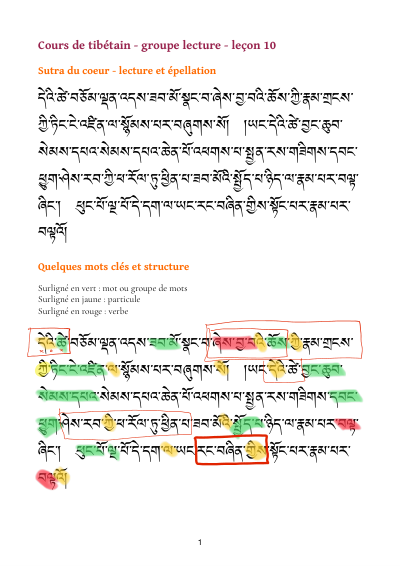 Cours de tibétain - groupe lecture - leçon 10
Sutra du coeur - lecture et épellation
དེའི་ཚེ་བཅོམ་ལྡན་འདས་ཟབ་མོ་སྣང་བ་ཞེས་བྱ་བའི་ཆོས་ཀྱི་རྣམ་གྲངས་
ཀྱི་ཏིང་ངེ་འཛིན་ལ་སྙོམས་པར་བཞུགས་སོ། །ཡང་དེའི་ཚེ་བྱང་ཆུབ་
སེམས་དཔའ་སེམས་དཔའ་ཆེན་པོ་འཕགས་པ་སྤྱན་རས་གཟིགས་དབང་
ཕྱུག་ཤེས་རབ་ཀྱི་ཕ་རོལ་ཏུ་ཕྱིན་པ་ཟབ་མོའི་སྤྱོད་པ་ཉིད་ལ་རྣམ་པར་བལྟ་
ཞིང་། ཕུང་པོ་ལྔ་པོ་དེ་དག་ལ་ཡང་རང་བཞིན་གྱིས་སྟོང་པར་རྣམ་པར་
བལྟའོ།
Quelques mots clés et structure
Surligné en vert : mot ou groupe de mots
Surligné en jaune : particule
Surligné en rouge : verbe
དེའི་ཚེ་བཅོམ་ལྡན་འདས་ཟབ་མོ་སྣང་བ་ཞེས་བྱ་བའི་ཆོས་ཀྱི་རྣམ་གྲངས་
ཀྱི་ཏིང་ངེ་འཛིན་ལ་སྙོམས་པར་བཞུགས་སོ། །ཡང་དེའི་ཚེ་བྱང་ཆུབ་
སེམས་དཔའ་སེམས་དཔའ་ཆེན་པོ་འཕགས་པ་སྤྱན་རས་གཟིགས་དབང་
ཕྱུག་ཤེས་རབ་ཀྱི་ཕ་རོལ་ཏུ་ཕྱིན་པ་ཟབ་མོའི་སྤྱོད་པ་ཉིད་ལ་རྣམ་པར་བལྟ་
ཞིང་། ཕུང་པོ་ལྔ་པོ་དེ་དག་ལ་ཡང་རང་བཞིན་གྱིས་སྟོང་པར་རྣམ་པར་
བལྟའོ།
1